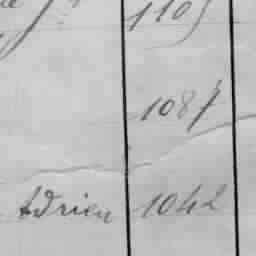 1105
1087
Adrien 1042